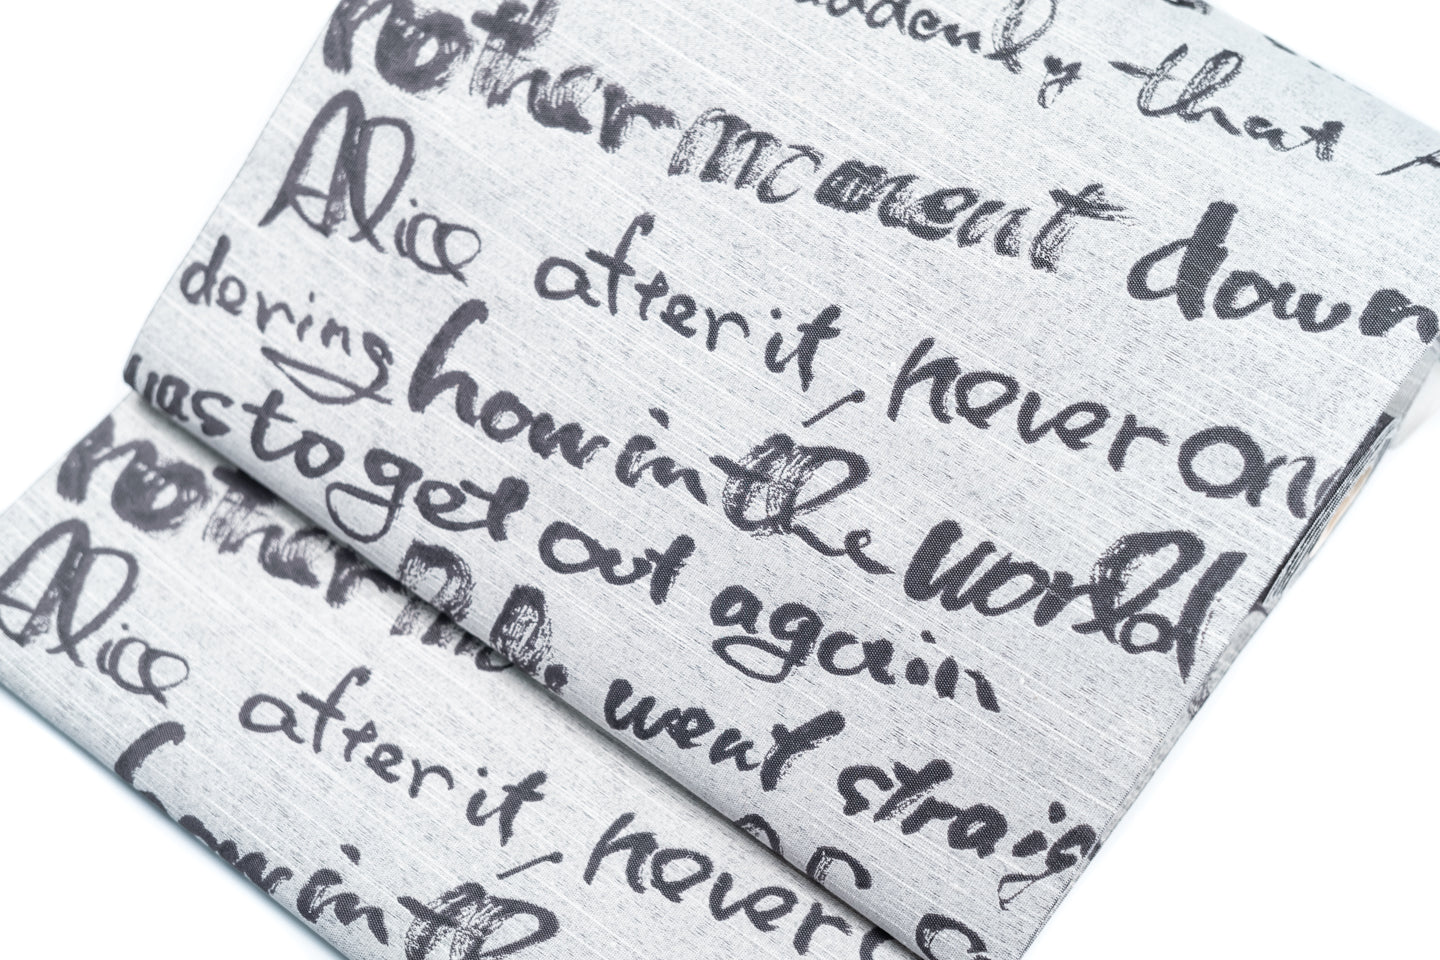 suddenly that
nother moment down
Alice after it, never on
dering how in the world
was to get out again
went straig
nother
Alice
after it, never
how in the